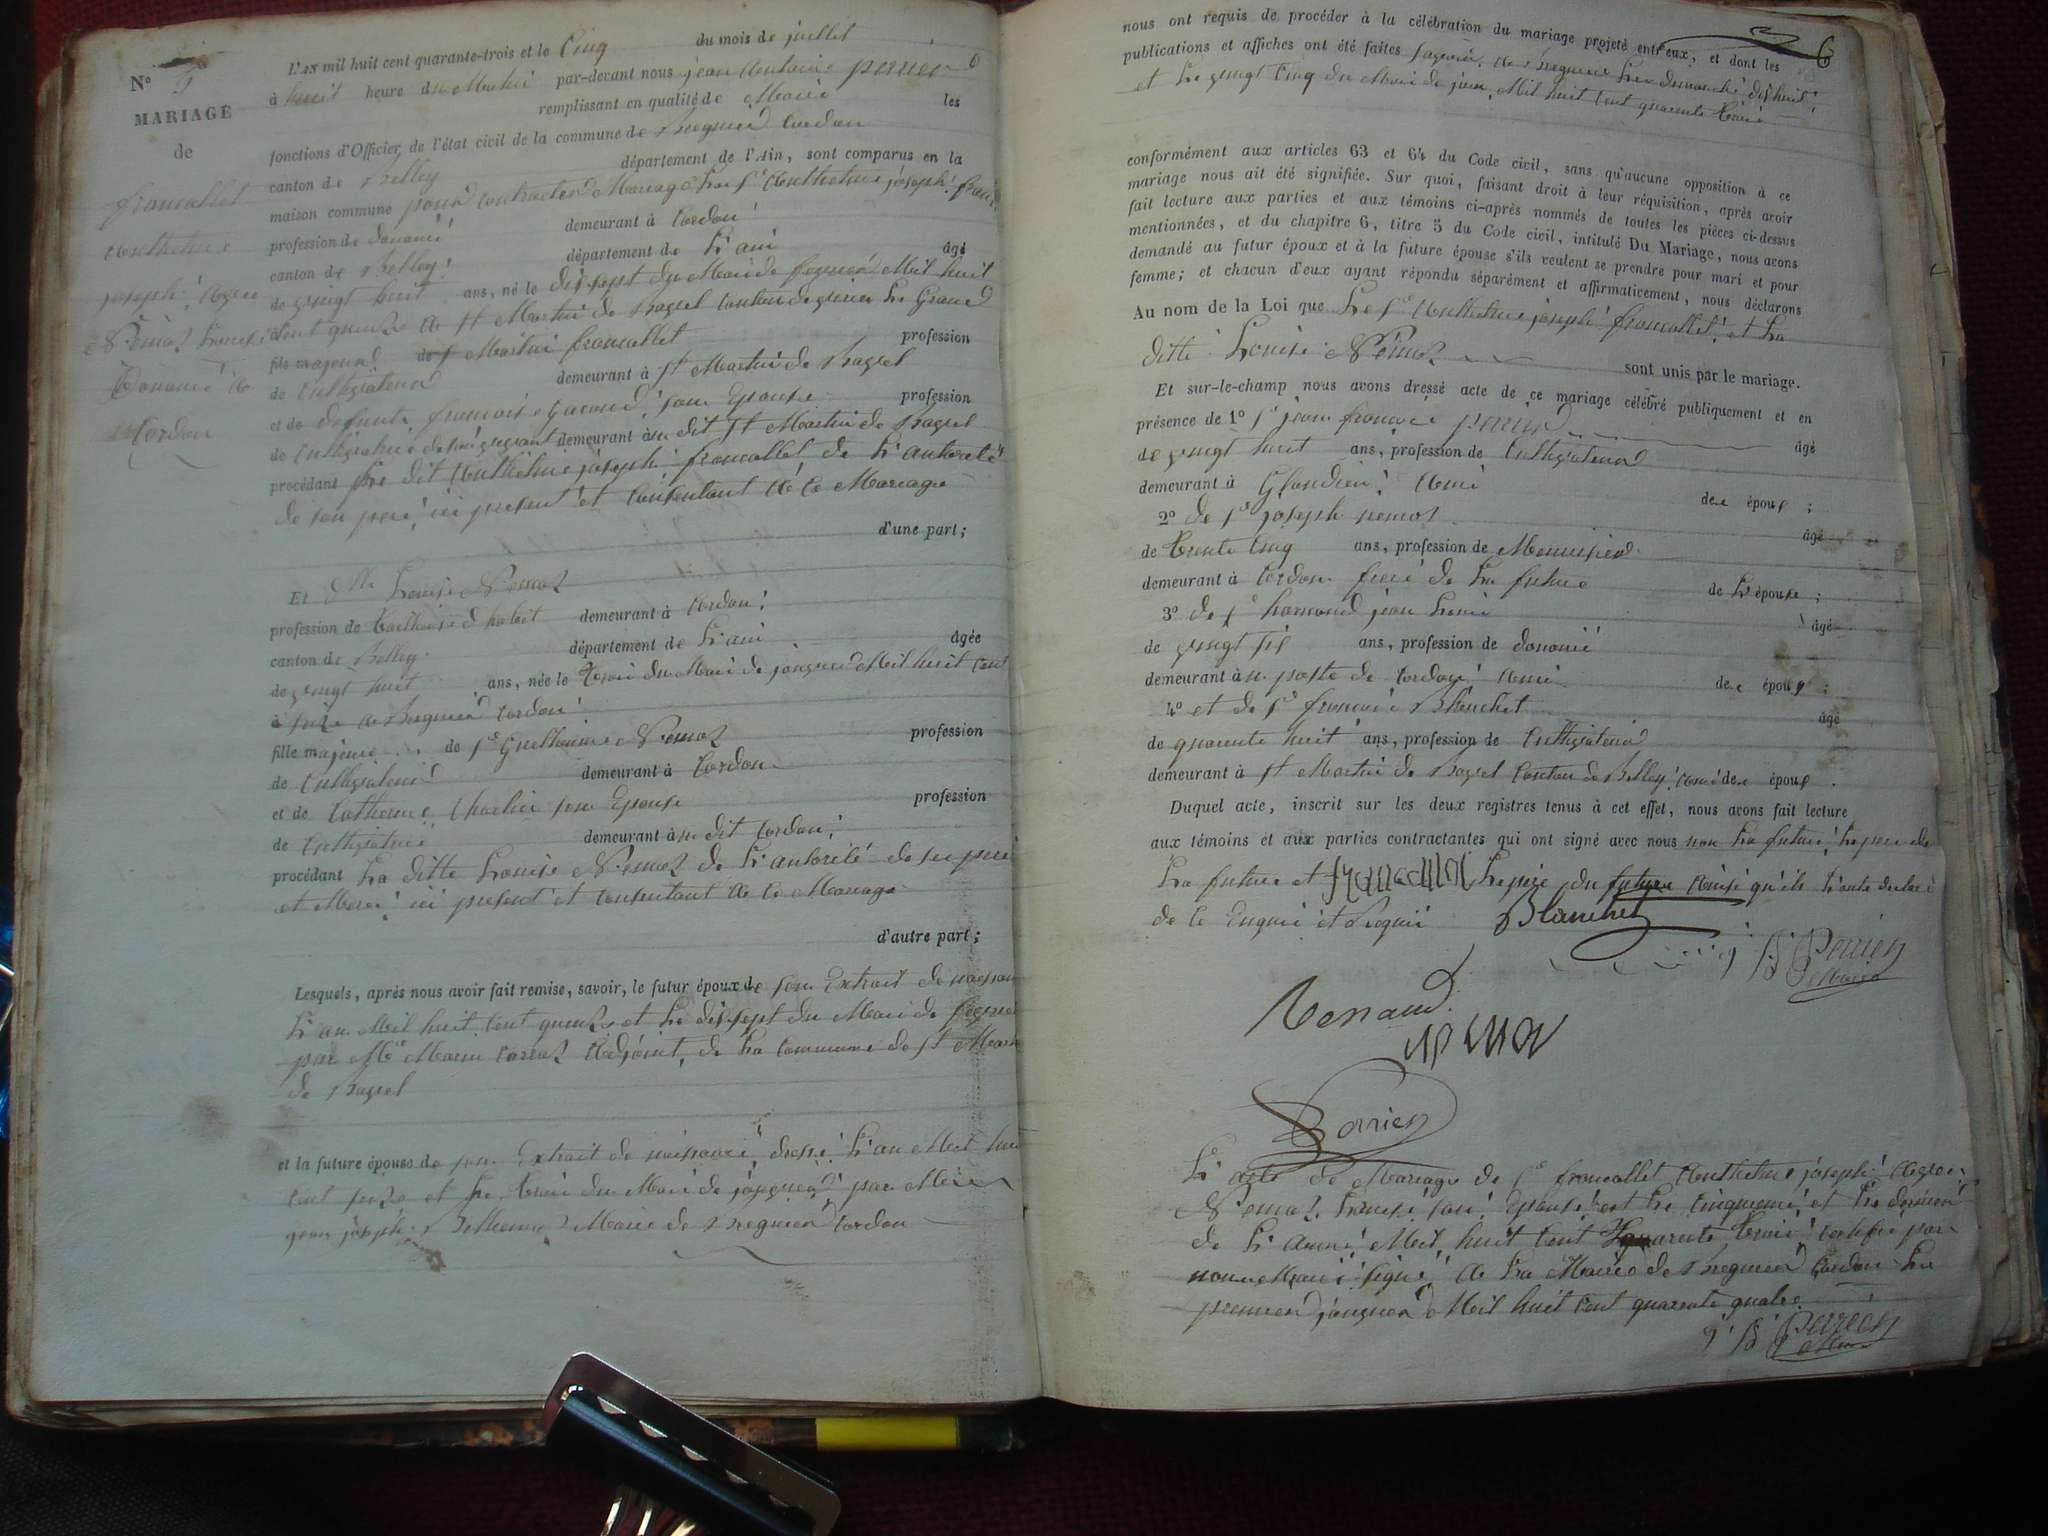 N° 5
MARIAGE
de
francallet
Anthelme
joseph. Avec
Nemoz Louise
Douanié à
Cordon
L'AN mil huit cent quarante-trois et le Cinq du mois de juillet
à huit heure du Matin par-devant nous jean Antoine perrier
remplissant en qualité de Maire les
fonctions d'Officier de l'état civil de la commune de Bregnier Cordon
canton de Belley département de l'Ain, sont comparus en la
maison commune pour contracter Mariage Le Sr Anthelme joseph
profession de douanié demeurant à Cordon
canton de Belley département de L'ain âgé
de vingt huit ans, né le dix sept du Mois de fevrier Mil huit
Cent quinze à St Martin de Bavel Canton de virieu Le Grand
fils majeur de Sr Martin francallet profession
de Cultivateur demeurant à St Martin de Bavel
et de defunte francoise son Epouse profession
de Cultivatrice de son vivant demeurant au dit St Martin de Bavel
procédant Le dit Anthelme joseph francallet de L'autorité
de son peré ici present et Consentant à Ce Mariage
d'une part;
Et Mlle Louise Nemoz
profession de demeurant à Cordon
canton de Belley département de L'ain âgée
de vingt huit ans, née le trois du Mois de janvier Mil huit Cent
seize à Bregnier Cordon
fille majeure de Sr Guillaume Nemoz profession
de Cultivateur demeurant à Cordon
et de Catherine Charlin son Epouse profession
de Cultivatrice demeurant au dit Cordon
procédant La ditte Louise Nemoz de L'autorité de ses peré
et Meré ici present et Consentant à Ce Mariage
d'autre part;
Lesquels, après nous avoir fait remise, savoir, le futur époux de son Extrait de naissance
L'an Mil huit Cent quinze et Le dix sept du Mois de fevrier
par Mr Adjoint de La Commune de St Martin
de Bavel
et la future épouse de son Extrait de naissance dressé L'an Mil huit
Cent seize et Le trois du Mois de janvier par
jean joseph Maire de Bregnier Cordon
6
nous ont requis de procéder à la célébration du mariage projeté entr'eux, et dont les
publications et affiches ont été faites savoir à Bregnier Les dimanche dixhuit
et Le vingt Cinq du Mois de juin Mil huit Cent quarante trois
conformément aux articles 63 et 64 du Code civil, sans qu'aucune opposition à ce
mariage nous ait été signifiée. Sur quoi, faisant droit à leur réquisition, après avoir
fait lecture aux parties et aux témoins ci-après nommés de toutes les pièces ci-dessus
mentionnées, et du chapitre 6, titre 5 du Code civil, intitulé Du Mariage, nous avons
demandé au futur époux et à la future épouse s'ils veulent se prendre pour mari et pour
femme; et chacun d'eux ayant répondu séparément et affirmativement, nous déclarons
Au nom de la Loi que Le Sr Anthelme joseph francallet et La
ditte Louise Nemoz sont unis par le mariage.
Et sur-le-champ nous avons dressé acte de ce mariage célébré publiquement et en
présence de 1° Sr jean francois perrier âgé
de vingt huit ans, profession de Cultivateur
demeurant à Glandieu Ami de l' époux ;
2° de Sr joseph nemoz âgé
de trente Cinq ans, profession de Menuisier
demeurant à Cordon freré de La future de L'épouse ;
3° de Sr jean Louis âgé
de vingt six ans, profession de douanié
demeurant au poste de Cordon Ami de l' époux ;
4° et de Sr francois Blanchet âgé
de quarante huit ans, profession de Cultivateur
demeurant à St Martin de Bavel Canton de Belley Ami de l' époux.
Duquel acte, inscrit sur les deux registres tenus à cet effet, nous avons fait lecture
aux témoins et aux parties contractantes qui ont signé avec nous non La future, Le peré de
La future et Le peré du future qu'ils L'ont declaré
de Ce Enquis et Requis
Blanchet
Perrier
Maire
nemoz
Perrier
L'acte de Mariage de Sr francallet Anthelme joseph Avec
Nemoz Louise son Epouse est Le Cinquieme et Le dernier
de L'année Mil huit Cent quarante trois Certifié par
nous Maire signé à La Mairie de Bregnier Cordon Le
premier janvier Mil huit Cent quarante quatre
Perrier
Maire